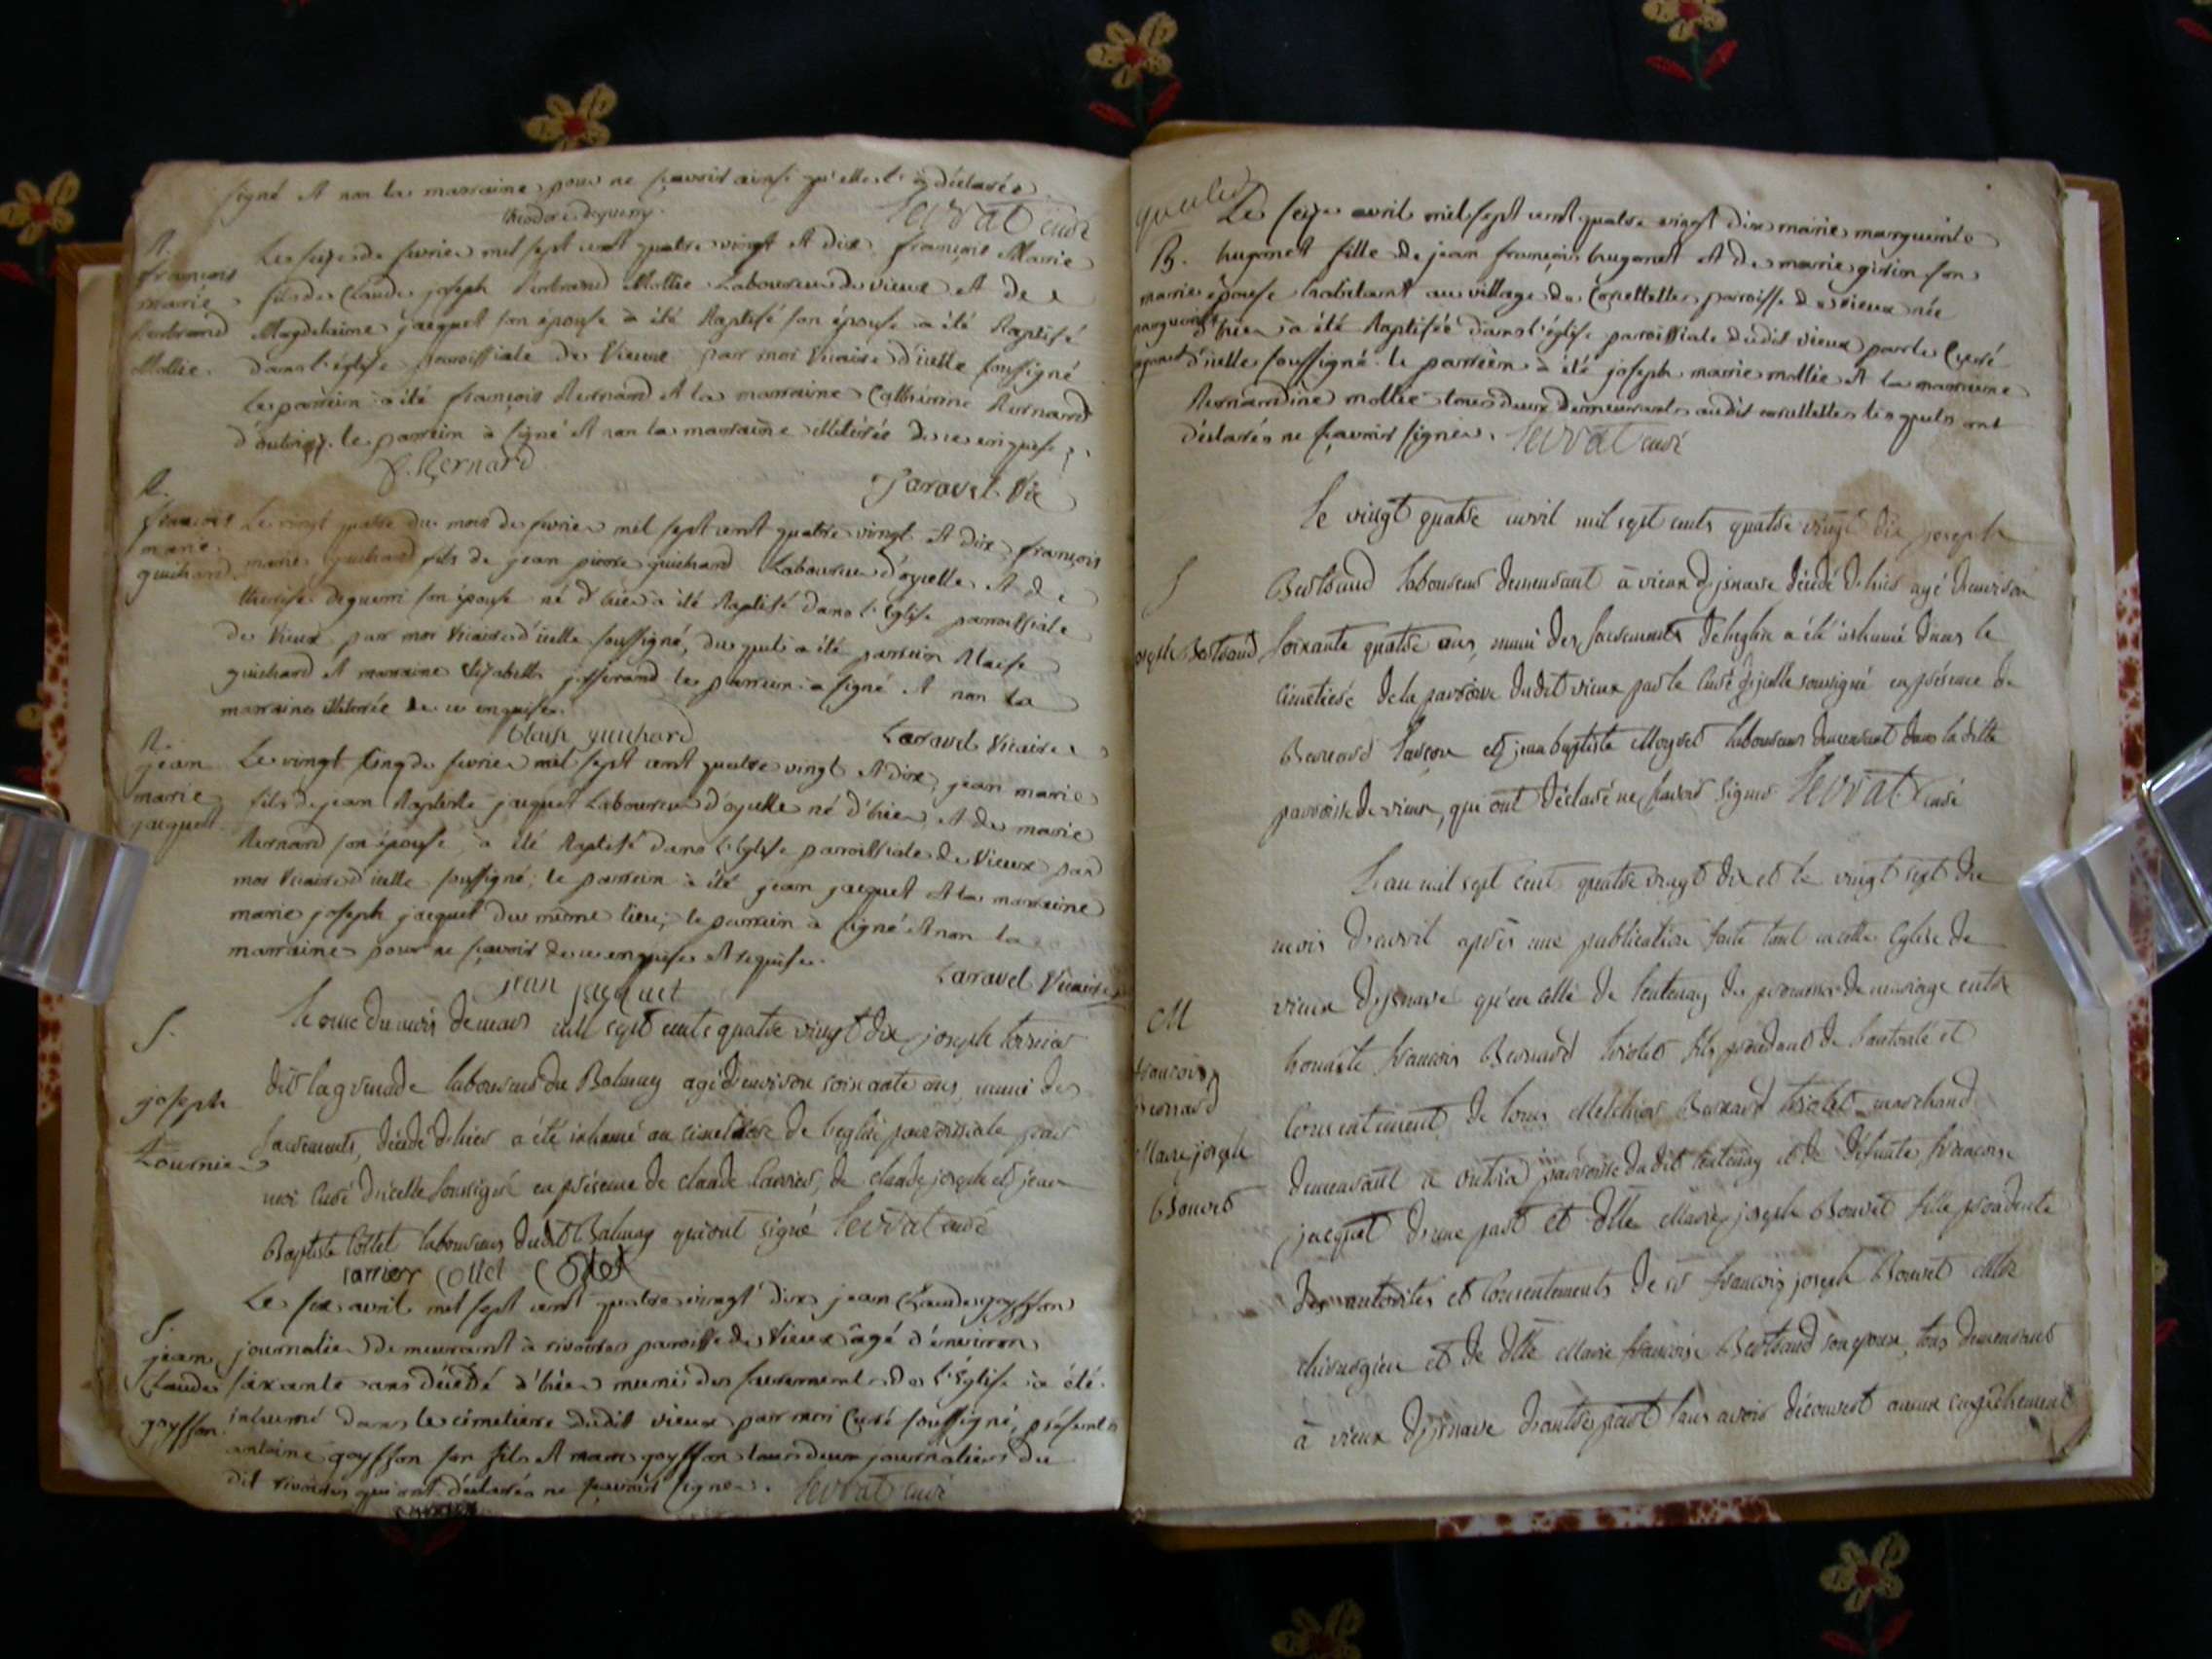 signé et non la marraine pour ne sçavoir ainsi qu'elle l'a déclarée
theodore deguerry
Levrat curé
B.
françois
marie
bertrand
Mollie.
Le seize de fevrier mil sept cent quatre vingt et dix françois Marie
fils de Claude joseph bertrand Mollie Laboureur de vieux et de
Magdelaine jacquet son épouse a été baptisé son épouse a été baptisé
dans l'église paroissiale de Vieux par moi Vicaire d'icelle soussigné
le parrein a été françois bernard et la marraine Catherine bernard
le parrein a signé et non la marraine illiterée de ce enquise
f. bernard
Laravel Vic
B.
françois
marie
guichard
Le vingt quatre du mois de fevrier mil sept cent quatre vingt et dix françois
marie guichard fils de jean pierre guichard Laboureur d'oyselle et de
therese deguerri son épouse né d'hier a été baptisé dans l'Eglise paroissiale
de Vieux par moi Vicaire d'icelle soussigné, du quel a été parrein blaise
guichard et marraine Elizabeth josserand le parrein a signé et non la
marraine illiterée de ce enquise.
blaise guichard
Laravel Vicaire
B.
jean
marie
jacquet
Le vingt cinq de fevrier mil sept cent quatre vingt et dix, jean marie
fils de jean baptiste jacquet Laboureur d'oyselle né d'hier, et de marie
bernard son épouse, a été baptisé dans l'Eglise paroissiale de Vieux par
moi Vicaire d'icelle soussigné; le parrein a été jean jacquet et la marraine
marie joseph jacquet du même lieu; le parrein a signé et non la
marraine pour ne sçavoir de ce enquise et requise.
jean jacquet
Laravel Vicaire
S.
joseph
tournier
Le onze du mois de mars mil sept cents quatre vingt dix joseph tornier
dit lagrenade laboureur du Balmay agé d'environ soixante ans, muni des
sacrements, décédé d'hier a été inhumé au cimetiere de l'eglise parroissiale par
moi curé d'icelle soussigné en présence de claude carrier, de claude joseph et jean
Baptiste Collet laboureurs dudit Balmay qui ont signé Levrat curé
carrier Collet Collet
S.
jean
Claude
goysson
Le six avril mil sept cent quatre vingt dix jean Claude goysson
journalier demeurant à rivoire paroisse de Vieux âgé d'environ
soixante ans décédé d'hier muni des sacrements de l'Église a été
inhumé dans le cimetiere dudit vieux par moi Curé soussigné, présents
antoine goysson son fils et marc goysson tous deux journaliers du
dit rivoire qui ont déclarés ne sçavoir signer. Levrat curé
B.
marie
marguerite
Le seize avril mil sept cent quatre vingt dix marie marguerite
hugonet fille de jean françois hugonet et de marie girin son
épouse habitant au village de Corcelettes paroisse de vieux née
d'hier a été baptisée dans l'église paroissiale dudit vieux par le Curé
d'icelle soussigné. le parrein a été joseph marie mollie et la marraine
bernardine mollie tous deux demeurants audit corcelettes lesquels ont
déclarés ne sçavoir signer. Levrat curé
S
joseph Bertrand
Le vingt quatre avril mil sept cents quatre vingt dix joseph
Bertrand laboureur demeurant à vieux d'jsnave décédé d'hier agé d'environ
soixante quatre ans, muni des sacrements de l'eglise a été inhumé dans le
cimetiere de la parroisse dudit vieux par le curé d'jcelle soussigné en présence de
Bernard Savçon et jean baptiste Moyret laboureurs demeurant dans la ditte
parroisse de vieux, qui ont déclaré ne sçavoir signer Levrat curé
M
francois
Bernard
Marie joseph
Bouvet
L'an mil sept cent quatre vingt dix et le vingt sept du
mois d'avril après une publication faite tant en cette Eglise de
vieux d'jsnave qu'en celle de Lentenay des promesses de mariage entre
honnête francois Bernard triolet fils procédant de l'autorité et
consentement de Louis Melchior Bernard triolet marchand
demeurant a outria parroisse dudit Lentenay et de défunte francoise
jacquet d'une part et dlle Marie joseph Bouvet fille procédente
des autorités et consentements de sr francois joseph Bouvet Mtre
chirurgien et de dlle Marie francoise Bertrand son epouse, tous demeurants
à vieux d'jsnave d'autre part sans avoir découvert aucun empêchement